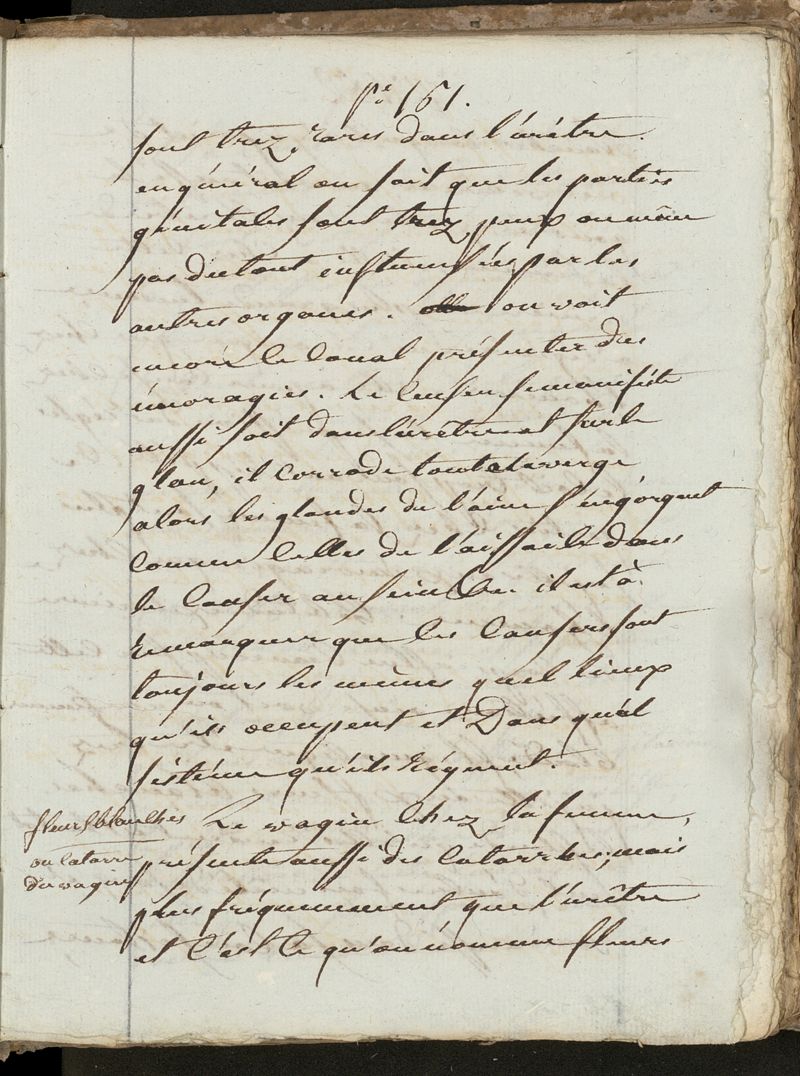 pe 161.
sont trez rares dans l'urétre.
en général on sait que les parties
génitales sont trez peux ou même
pas du tout influensées par les
autres organes. on voit
encore le Canal présenter des
émoragies. Le Censer se manifeste
aussi soit dans l'urêtre et sur le
glan, il corrode toute la verge
alors les glandes de l'aine s'engorgent
comme celles de l'aissaile dans
le Canser au sein &c. il est à
remarquer que les Cansers sont
toujours les mêmes quel lieux
qu'ils occupent et Dans quél
sistéme qu'ils régnent.
fleurs blanches
ou catarre
du vagin
Le vagin chez la femme,
présente aussi des Catarrhes, mais
plus fréquemment que l'urêtre
et c'est ce qu'on nomme fleurs